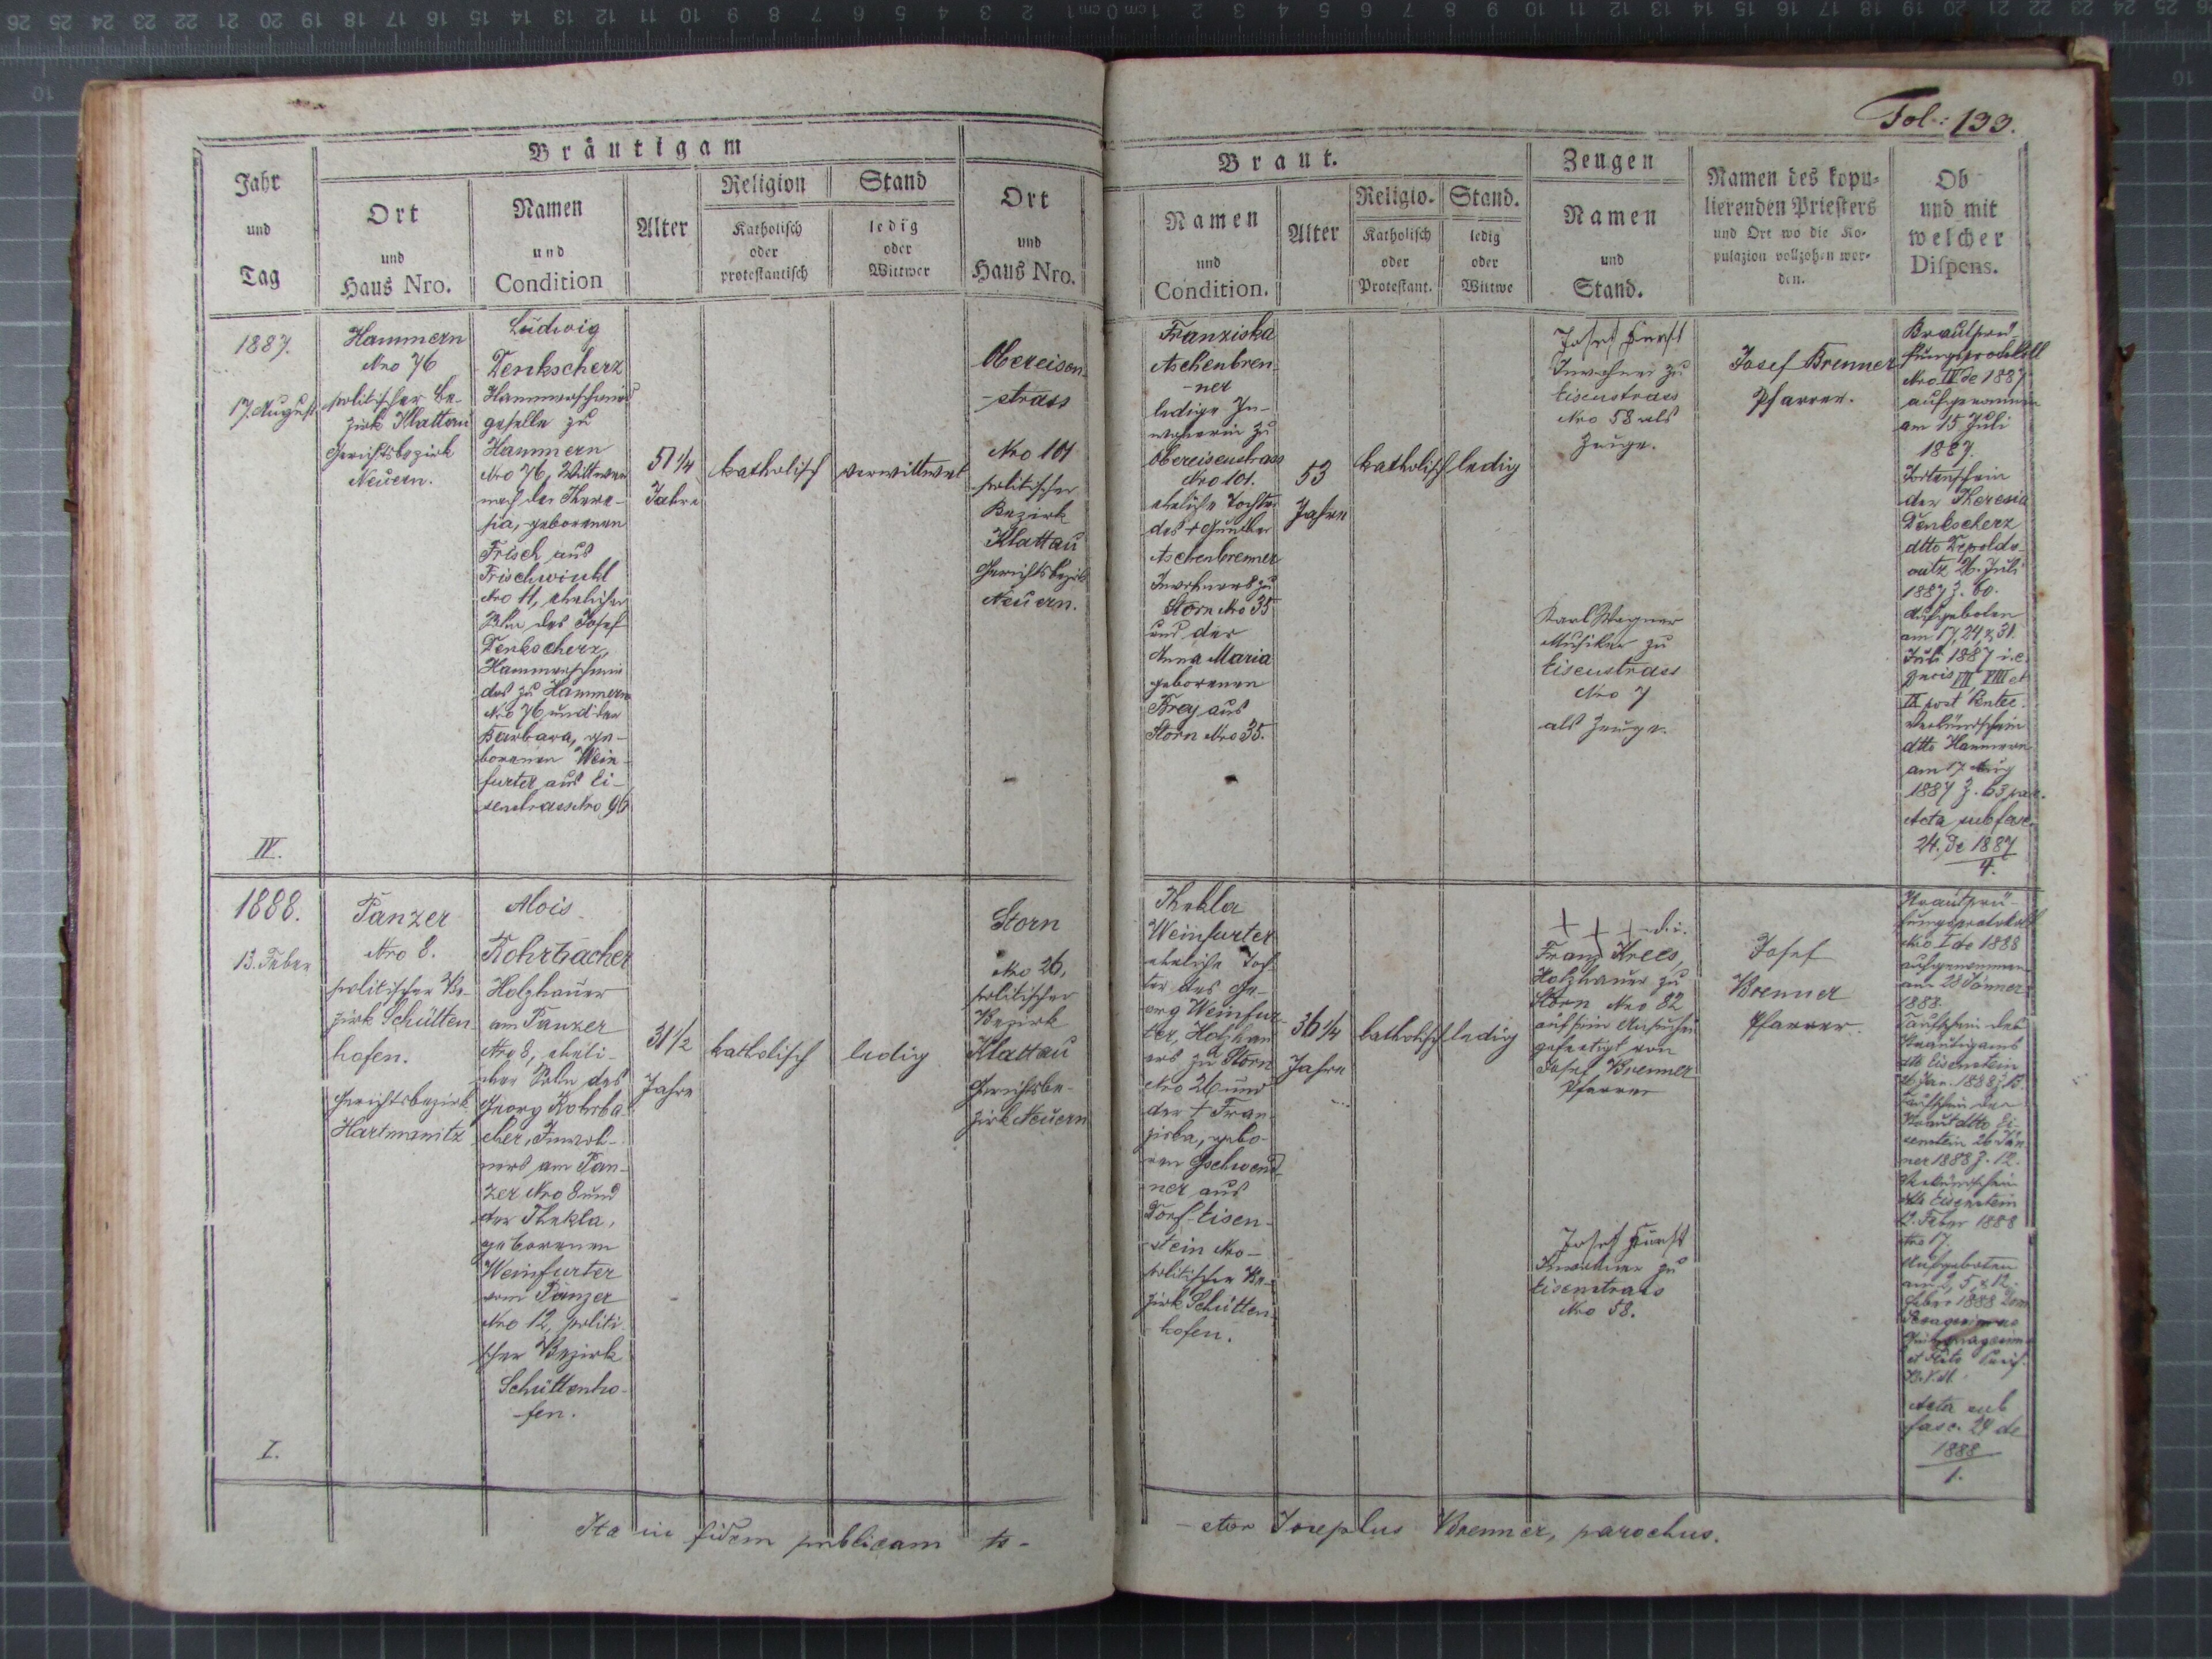 Fol.: 133.
Bräutigam
Braut.
Zeugen
Jahr
und
Tag
Ort
und
Haus Nro.
Namen
und
Condition
Alter
Religion
Katholisch
oder
protestantisch
Stand
ledig
oder
Wittwer
Ort
und
Haus Nro.
Namen
und
Condition.
Alter
Religio.
Katholisch
oder
Protestant.
Stand.
ledig
oder
Wittwe
Namen
und
Stand.
Namen des kopu-
lierenden Priesters
und Ort wo die Ko-
pulazion vollzohen wor-
den.
Ob
und mit
welcher
Dispens.
1887.
17. August
IV.
Hammern
Nro 76
politischer Be-
zirk Klattau
Gerichtsbezirk
Neuern.
Ludwig
Denkscherz
Hammerschmied
geselle zu
Hammern
Nro 76, Wittwer
nach der There-
sia, geborenen
Frisch aus
Frischwinkl
Nro 11, ehelicher
Sohn des Josef
Denkscherz,
Hammerschmie
des zu Hammern
Nro 76 und der
Barbara, ge-
borenen Wein-
furter aus Ei-
senstrass Nro 96
51 1/4
Jahre
katholisch
verwittwet
Obereisen-
-strass
Nro 101
politischer
Bezirk
Klattau
Gerichtsbezirk
Neuern.
Franziska
Aschenbren-
-ner
ledige In-
wohnerin zu
Obereisenstrass
Nro 101.
eheliche Tochter
des + Gunther
Aschenbrenner
Inwohners zu
Storn Nro 35
und der
Anna Maria
geborenen
Frey aus
Storn Nro 35.
53
Jahre
katholisch
ledig
Josef Fürst
Inwohner zu
Eisenstrass
Nro 58 als
Zeuge.
Karl Wagner
Musiker zu
Eisenstrass
Nro 7
als Zeuge.
Josef Brenner
Pfarrer.
Brautprü-
fungsprotokoll
Nro IV de 1887
aufgenommen
am 15 Juli
1887.
Todtenschein
der Theresia
Denkscherz
dtto Depolds-
26. Juli
1887 Z. 60.
Aufgeboten
am 17, 24, & 31.
Juli 1887 i. e.
VII VIII et
IX post Pentec.
Verkündschein
dtto Hammern
am 17 Aug
1887 Z. 63
Acta sub fasc.
24. de 1887
4.
1888.
13. Feber
I.
Panzer
Nro 8.
politischer Be-
zirk Schütten
hofen.
Gerichtsbezirk
Hartmanitz
Alois
Rohrbacher
Holzhauer
am Panzer
Nro 8, eheli-
cher Sohn des
Georg Rohrba-
cher, Inwoh-
ners am Pan-
zer Nro 8 und
der Thekla,
geborenen
Weinfurter
vom Panzer
Nro 12, politi-
scher Bezirk
Schüttenho-
fen.
31 1/2
Jahre
katholisch
ledig
Storn
Nro 26,
politischer
Bezirk
Klattau
Gerichtsbe-
zirk Neuern
Thekla
Weinfurter
eheliche Toch
ter des Ge-
org Weinfur
ter, Holzhau
ers zu Storn
Nro 26 und
der + Fran-
ziska, gebo-
ren Gschwend
ner aus
Dorf-Eisen-
stein Nro-
politischer Be-
zirk Schütten-
hofen.
36 1/4
Jahre
katholisch
ledig
+ + +
Franz Krees,
Holzhauer zu
Storn Nro 82
auf sein Ansuchen
gefertigt von
Josef Brenner
Pfarrer
Josef Fürst
Inwohner zu
Eisenstrass
Nro 58.
Josef
Brenner
Pfarrer.
Brautprü-
fungsprotokoll
Nro I de 1888
aufgenommen
am 28 Jänner
1888.
Taufschein des
Bräutigams
dtto Eisenstein
Jan. 1888
Taufschein der
Braut dtto Ei-
senstein 26 Jän
ner 1888 Z. 12.
Verkündschein
dtto Eisenstein
12. Feber 1888
Nro 17.
Aufgeboten
am 2, 5, & 12.
Feber 1888
Acta sub
fasc. 24 de
1888
1.
Ita in fidem publicam te-
-stor Josephus Brenner, parochus.